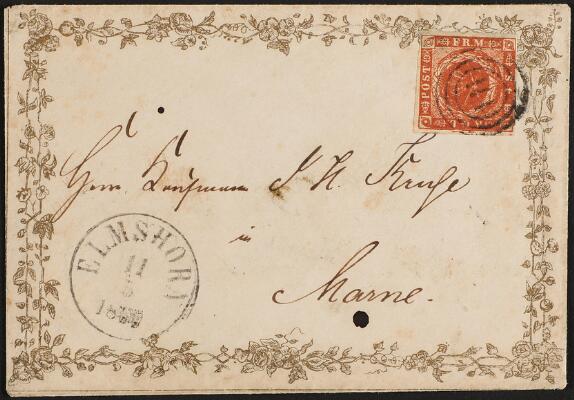 FRM
POST
Herrn Kaufmann J. H. Kruse
in
Marne.
ELMSHORN
11